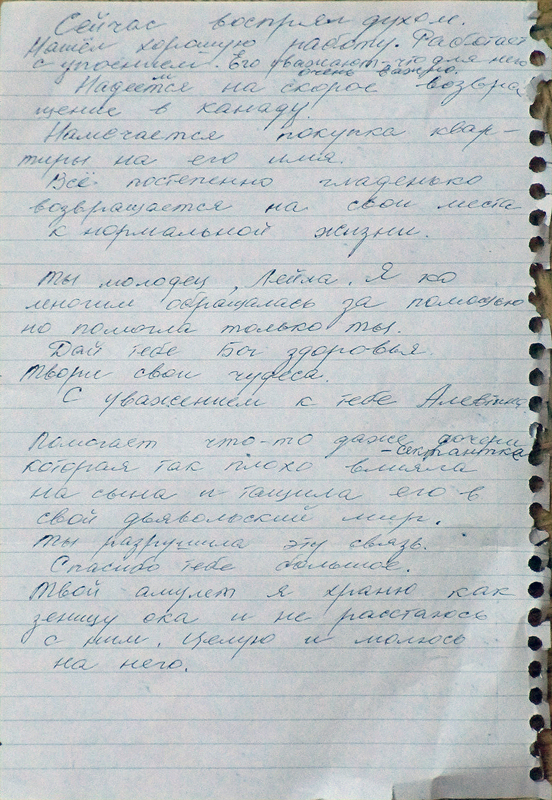 Сейчас воспрял духом.
Нашёл хорошую работу. Работает
с упоением. Его уважают, что для него
очень важно.
Надеемся на скорое возвра
щение в Канаду.
Намечается покупка квар-
тиры на его имя.
Всё постепенно гладенько
возвращается на свои места
к нормальной жизни.
Ты молодец, Лейла. Я ко
многим обращалась за помощью
но помогла только ты.
Дай тебе Бог здоровья.
Твори свои чудеса.
С уважением к тебе Алевтина
Помогает что-то даже дочери
-сектантка
которая так плохо влияла
на сына и тащила его в
свой дьявольский мир.
Ты разрушила эту связь.
Спасибо тебе большое.
Твой амулет я храню как
зеницу ока и не расстаюсь
с ним. Целую и молюсь
на него.